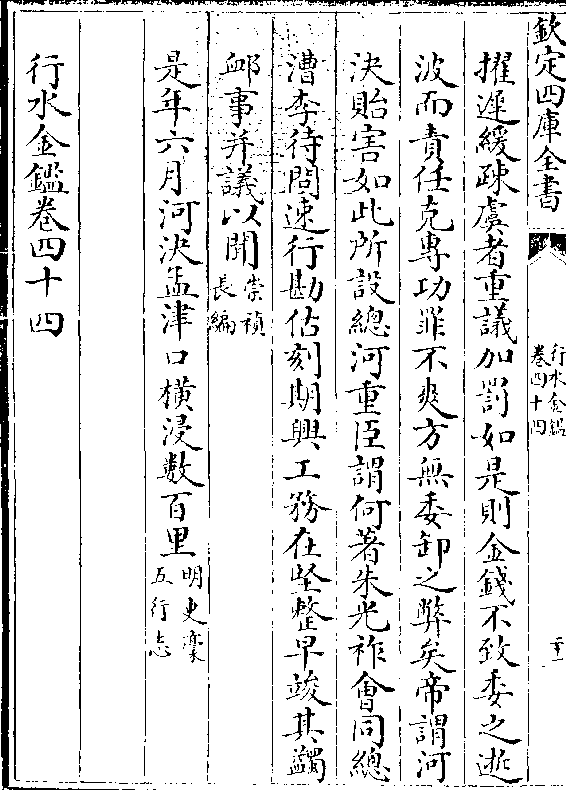 欽定四庫全書
行水金鑑
卷四十四
擢遲緩疎虞者重議加罰如是則金錢不致委之逝
波而責任克專功罪不爽方無委卸之弊矣帝謂河
決貽害如此所設總河重臣謂何著朱光祚會同總
漕李待問速行勘估刻期興工務在堅整早竣其蠲
䘏事并議以聞崇禎
長編
是年六月河決孟津口橫浸數百里明史藳
五行志
行水金鑑卷四十四